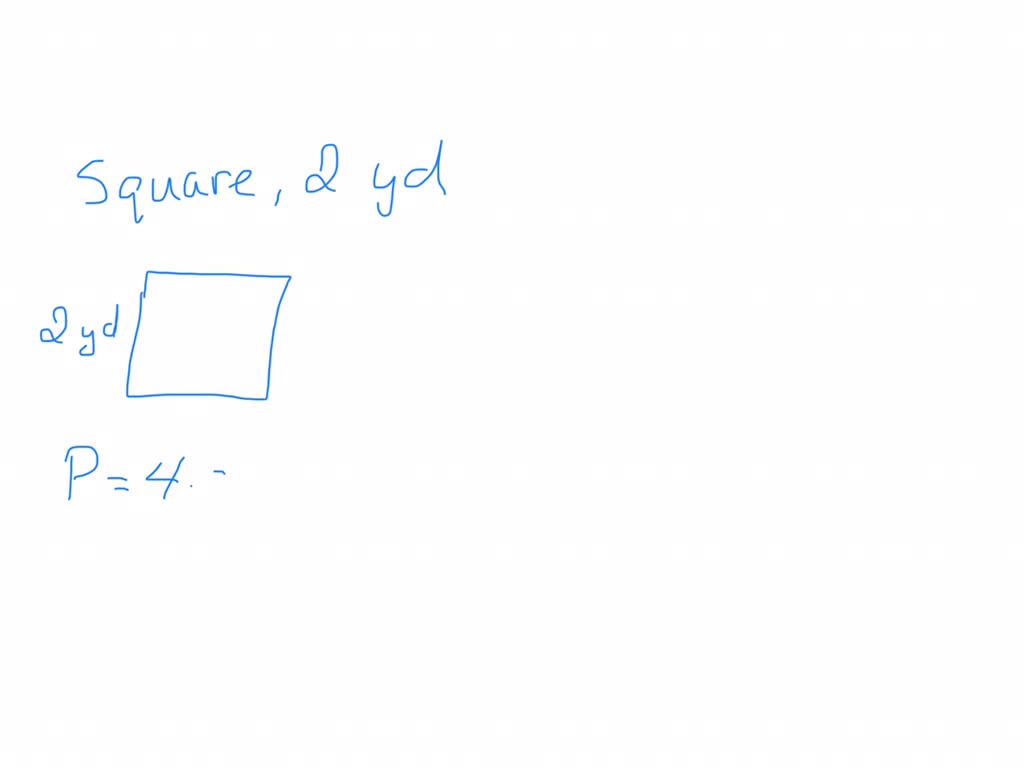 Square, 2 yd
2 yd
P = 4 .